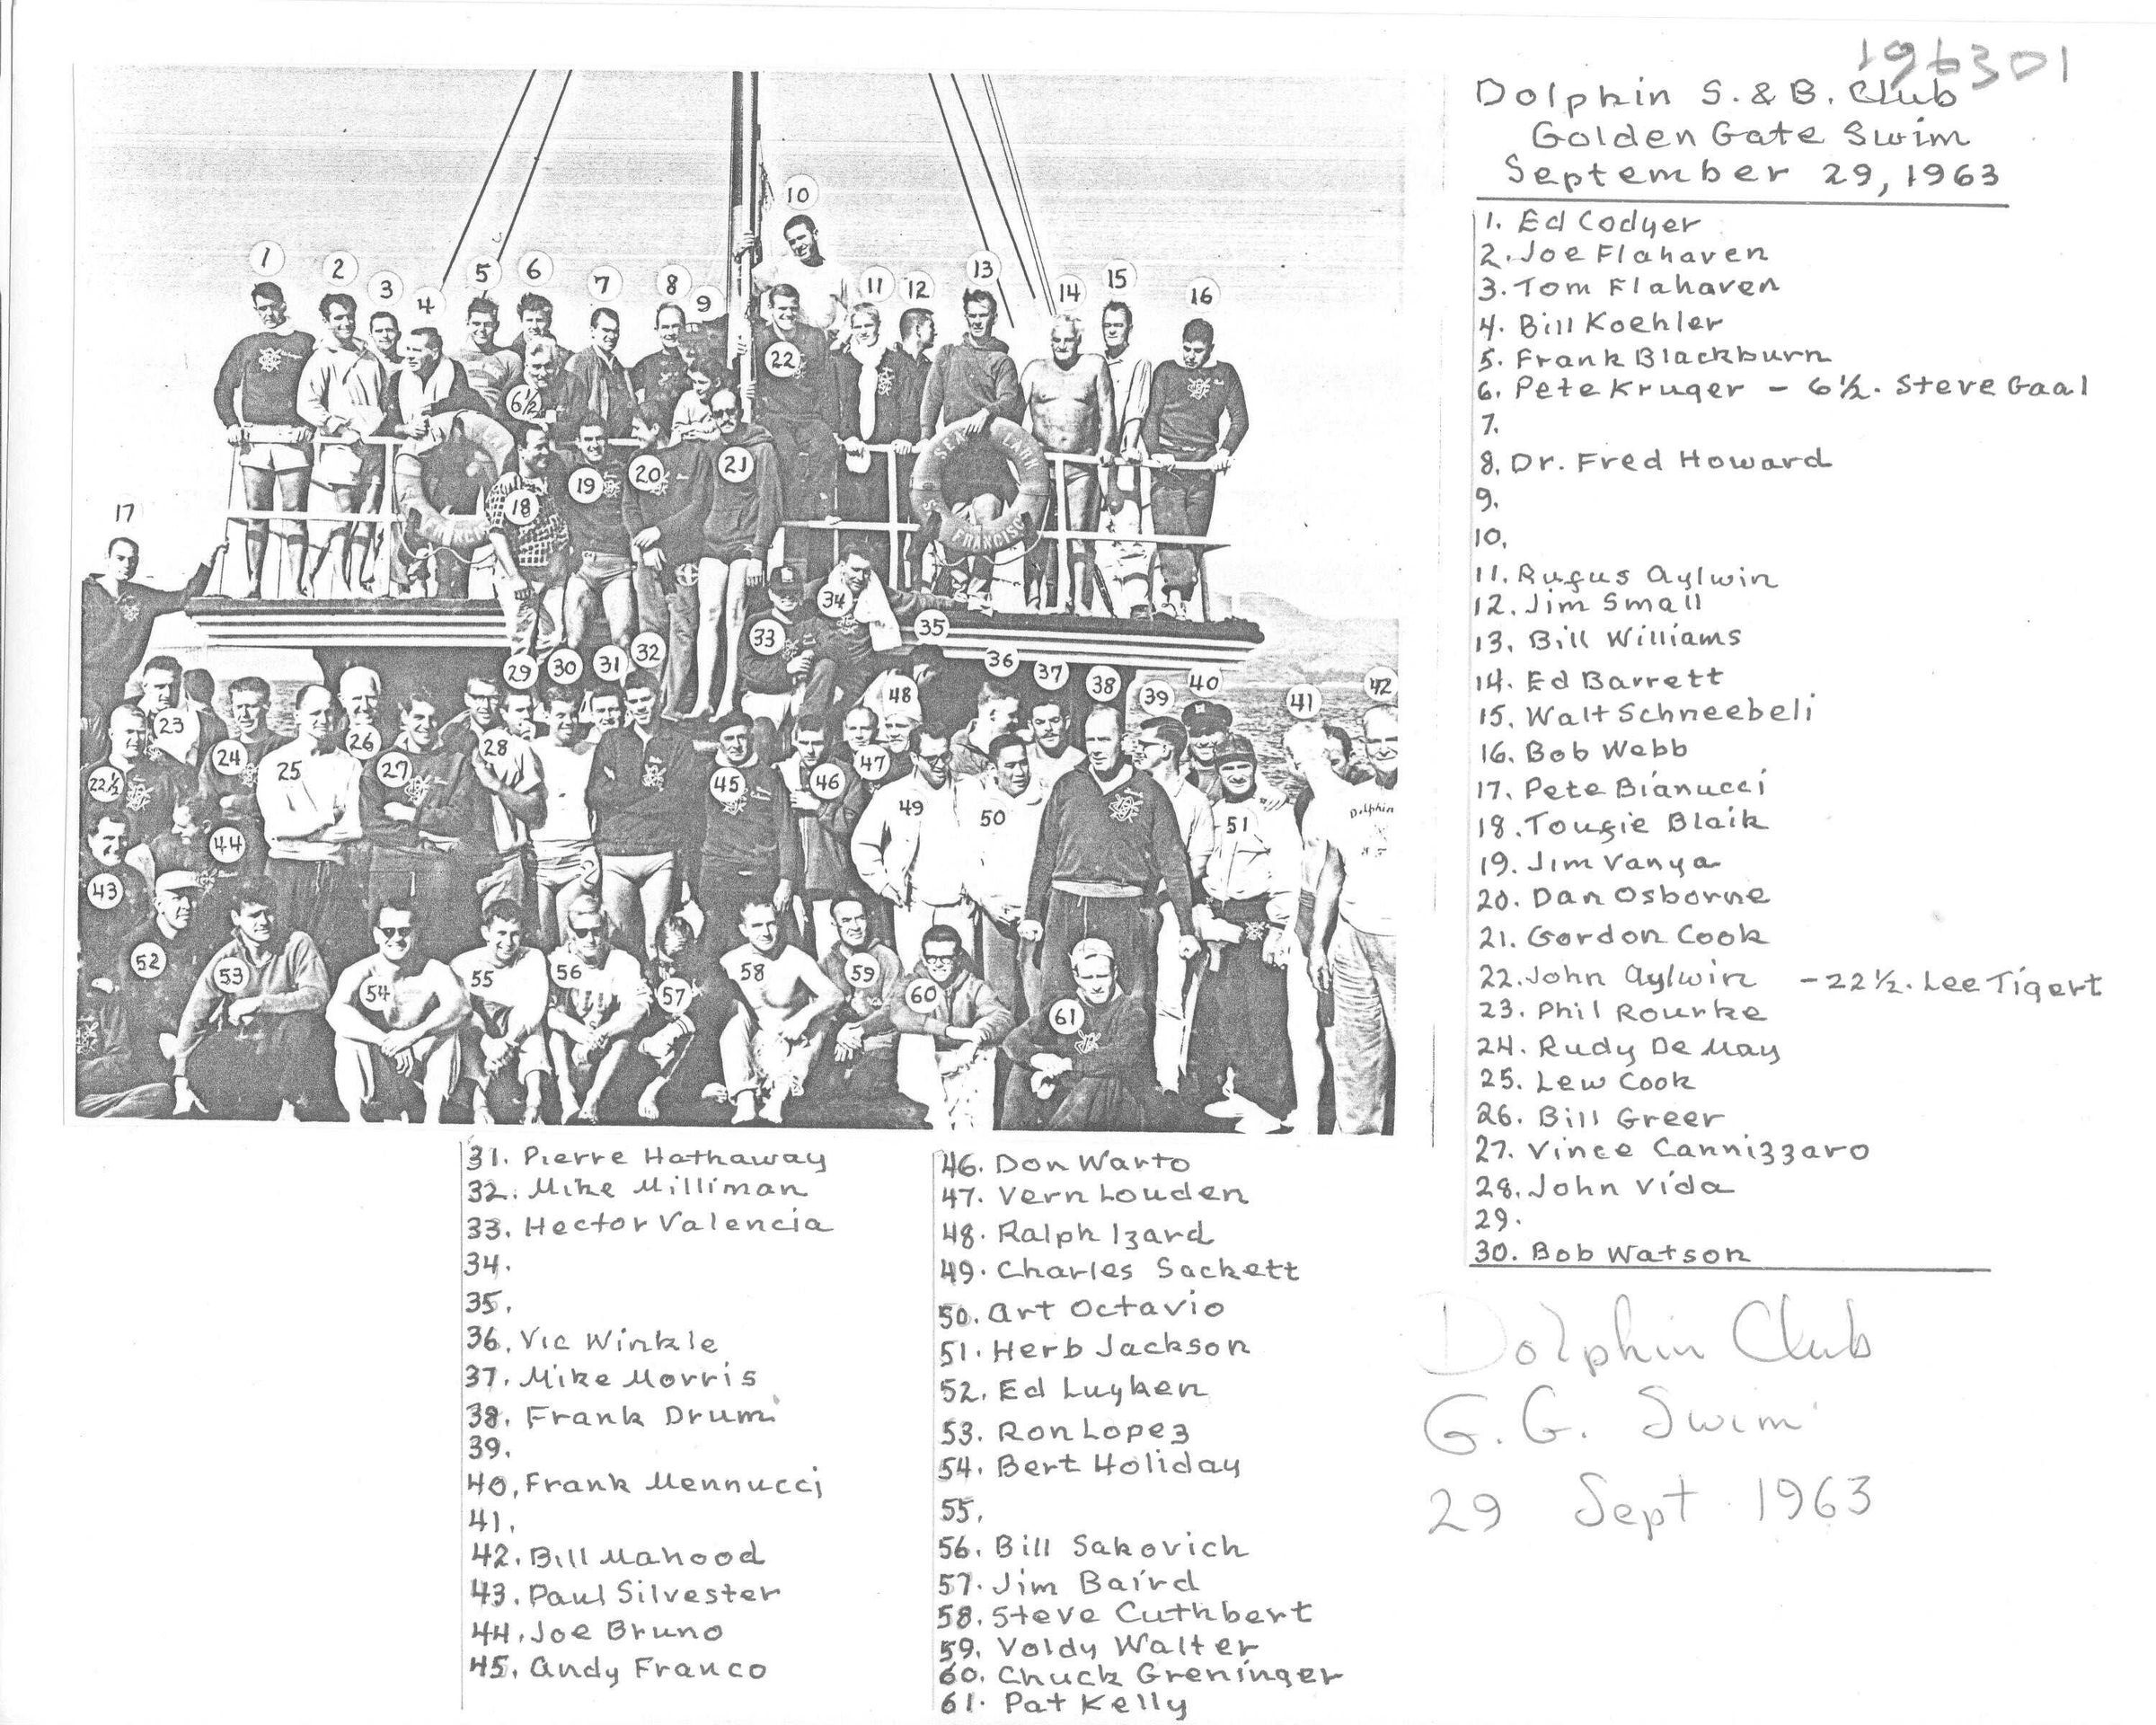 196301
Dolphin S. & B. Club
Golden Gate Swim
September 29, 1963
1. Ed Codyer
2. Joe Flahaven
3. Tom Flahaven
4. Bill Koehler
5. Frank Blackburn
6. Pete Kruger - 6½. Steve Gaal
7.
8. Dr. Fred Howard
9.
10.
11. Rufus Aylwin
12. Jim Small
13. Bill Williams
14. Ed Barrett
15. Walt Schneebeli
16. Bob Webb
17. Pete Bianucci
18. Tougie Blaik
19. Jim Vanya
20. Dan Osborne
21. Gordon Cook
22. John Aylwin - 22½. Lee Tigert
23. Phil Rourke
24. Rudy De May
25. Lew Cook
26. Bill Greer
27. Vince Cannizzaro
28. John Vida
29.
30. Bob Watson
31. Pierre Hathaway
32. Mike Milliman
33. Hector Valencia
34.
35.
36. Vic Winkle
37. Mike Morris
38. Frank Drum
39.
40. Frank Mennucci
41.
42. Bill Mahood
43. Paul Silvester
44. Joe Bruno
45. Andy Franco
46. Don Warto
47. Vern Louden
48. Ralph Izard
49. Charles Sackett
50. Art Octavio
51. Herb Jackson
52. Ed Luyken
53. Ron Lopez
54. Bert Holiday
55.
56. Bill Sakovich
57. Jim Baird
58. Steve Cuthbert
59. Voldy Walter
60. Chuck Greninger
61. Pat Kelly
Dolphin Club
G. G. Swim
29 Sept. 1963
10
1
2
3
4
5
6
7
8
9
11
12
13
14
15
16
22
6½
SEA LARK
S. FRANCISCO
17
18
19
20
21
33
34
35
29
30
31
32
36
37
38
39
40
41
42
22½
23
24
25
26
27
28
45
46
47
48
49
50
51
Dolphin
43
44
52
53
54
55
56
57
58
59
60
61